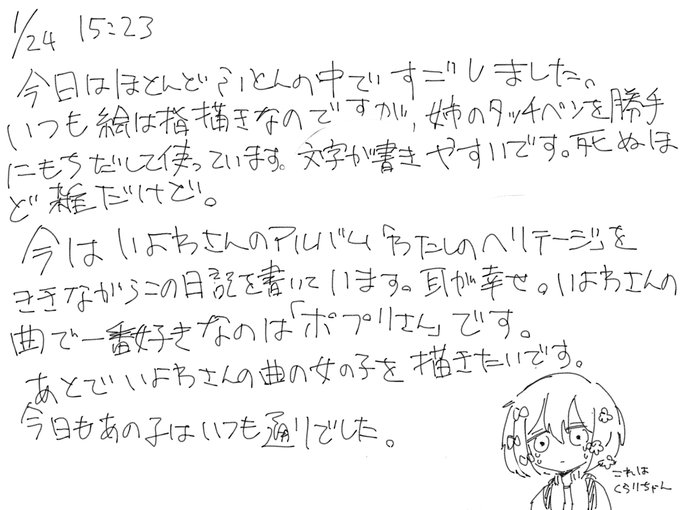 1/24 15:23
今日はほとんどふとんの中ですごしました。
いつも絵は指描きなのですが、姉のタッチペンを勝手
にもちだして使っています。文字が書きやすいです。死ぬほ
ど雑だけど。
今はいよわさんのアルバム「わたしのヘリテージ」を
ききながらこの日記を書いています。耳が幸せ。いよわさんの
曲で一番好きなのは「ポプリさん」です。
あとでいよわさんの曲の女の子を描きたいです。
今日もあの子はいつも通りでした。
これは
くらりちゃん